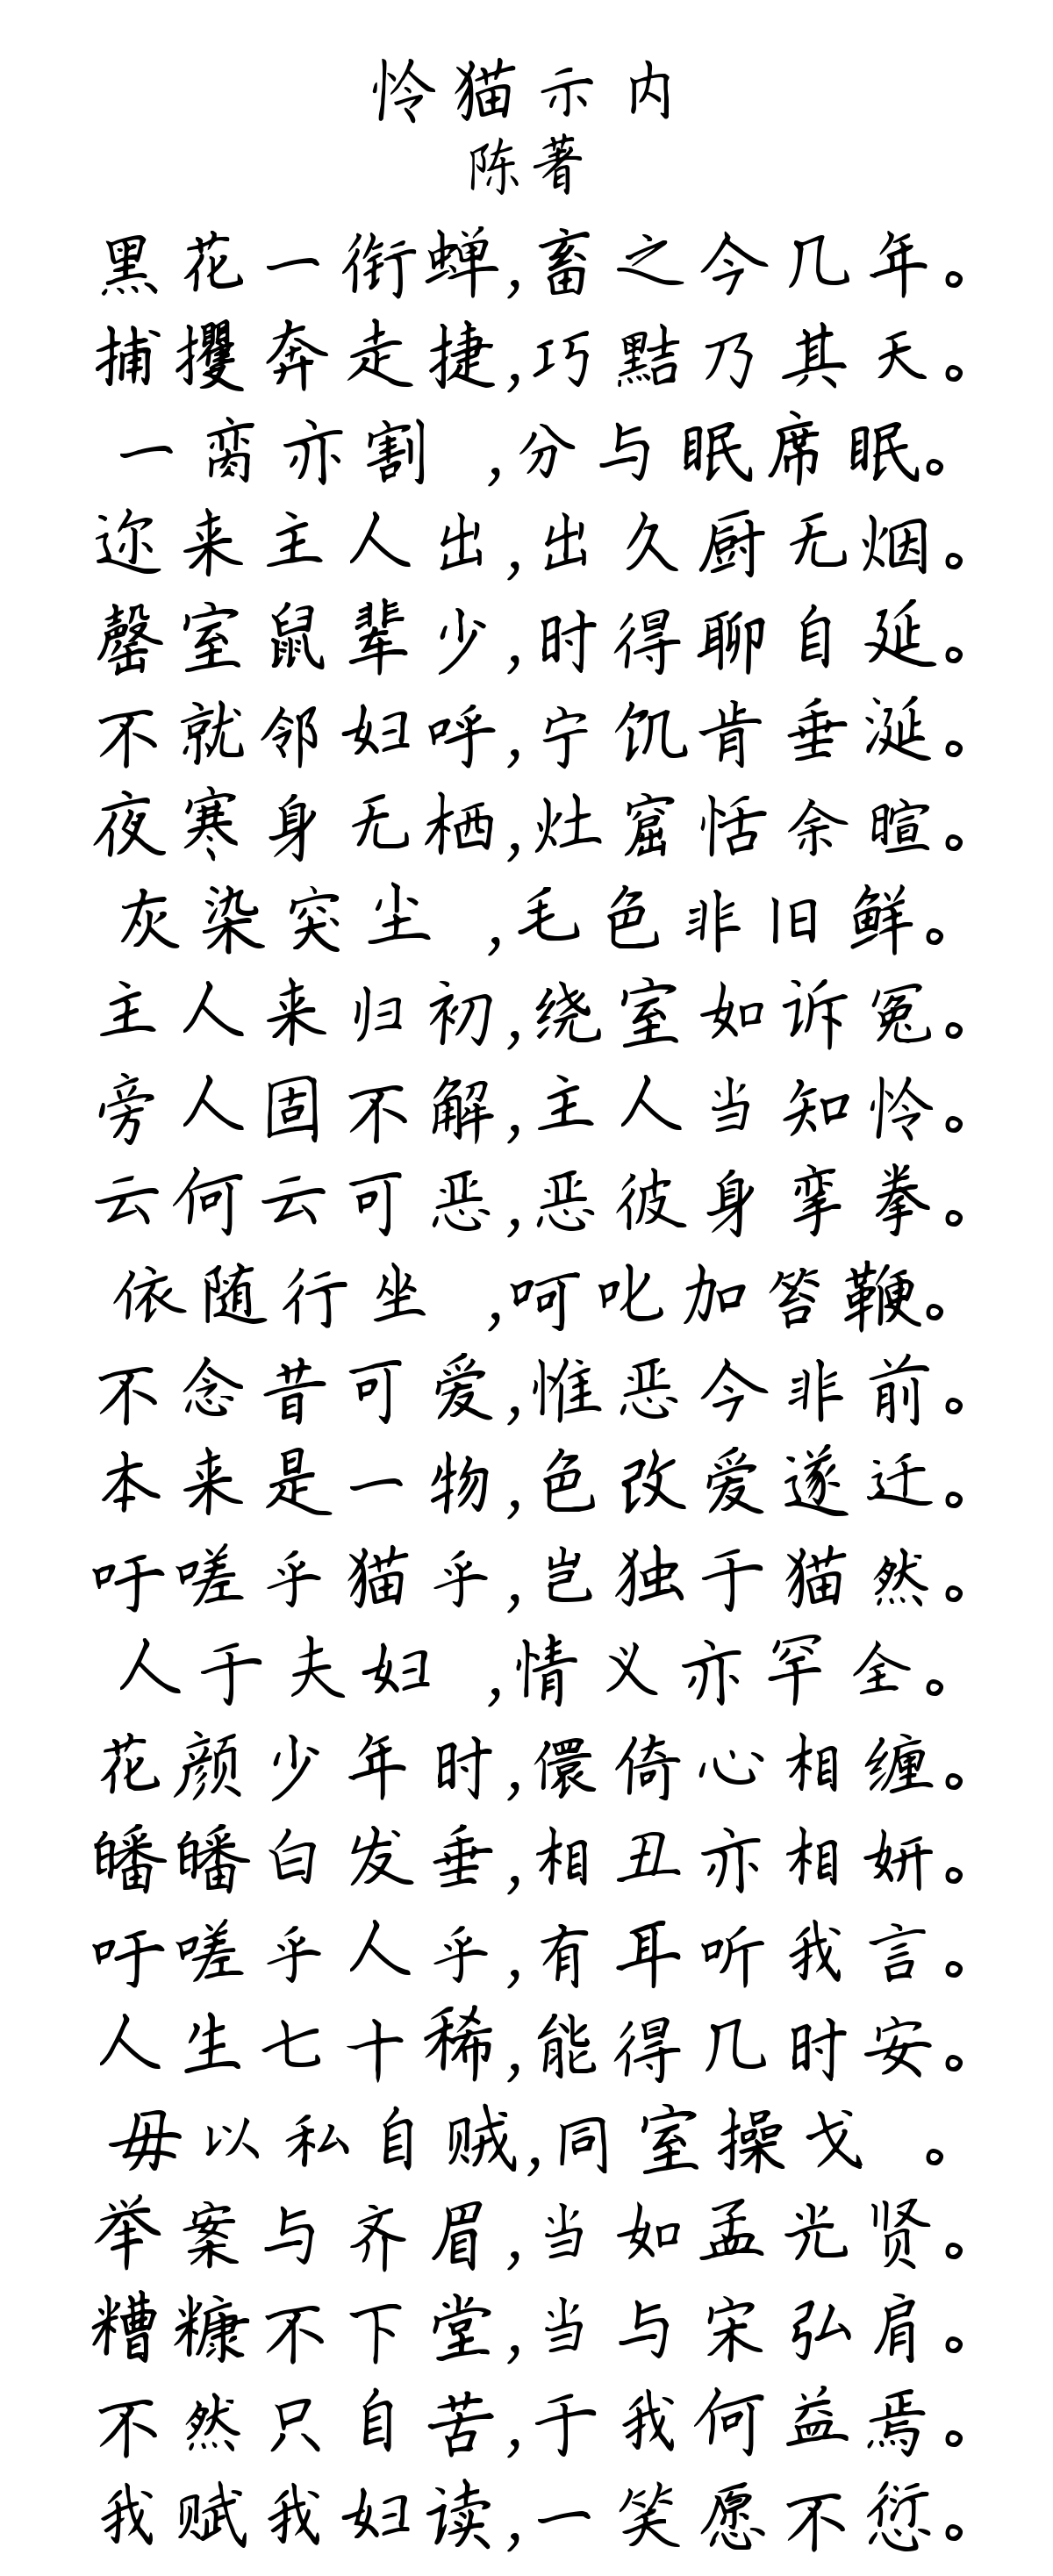 怜猫示内
陈著
黑花一衔蝉,畜之今几年。
捕攫奔走捷,巧黠乃其天。
一脔亦割 ,分与眠席眠。
迩来主人出,出久厨无烟。
罄室鼠辈少,时得聊自延。
不就邻妇呼,宁饥肯垂涎。
夜寒身无栖,灶窟恬余暄。
灰染突尘 ,毛色非旧鲜。
主人来归初,绕室如诉冤。
旁人固不解,主人当知怜。
云何云可恶,恶彼身挛拳。
依随行坐 ,呵叱加笞鞭。
不念昔可爱,惟恶今非前。
本来是一物,色改爱遂迁。
吁嗟乎猫乎,岂独于猫然。
人于夫妇 ,情义亦罕全。
花颜少年时,儇倚心相缠。
皤皤白发垂,相丑亦相妍。
吁嗟乎人乎,有耳听我言。
人生七十稀,能得几时安。
毋以私自贼,同室操戈 。
举案与齐眉,当如孟光贤。
糟糠不下堂,当与宋弘肩。
不然只自苦,于我何益焉。
我赋我妇读,一笑愿不愆。